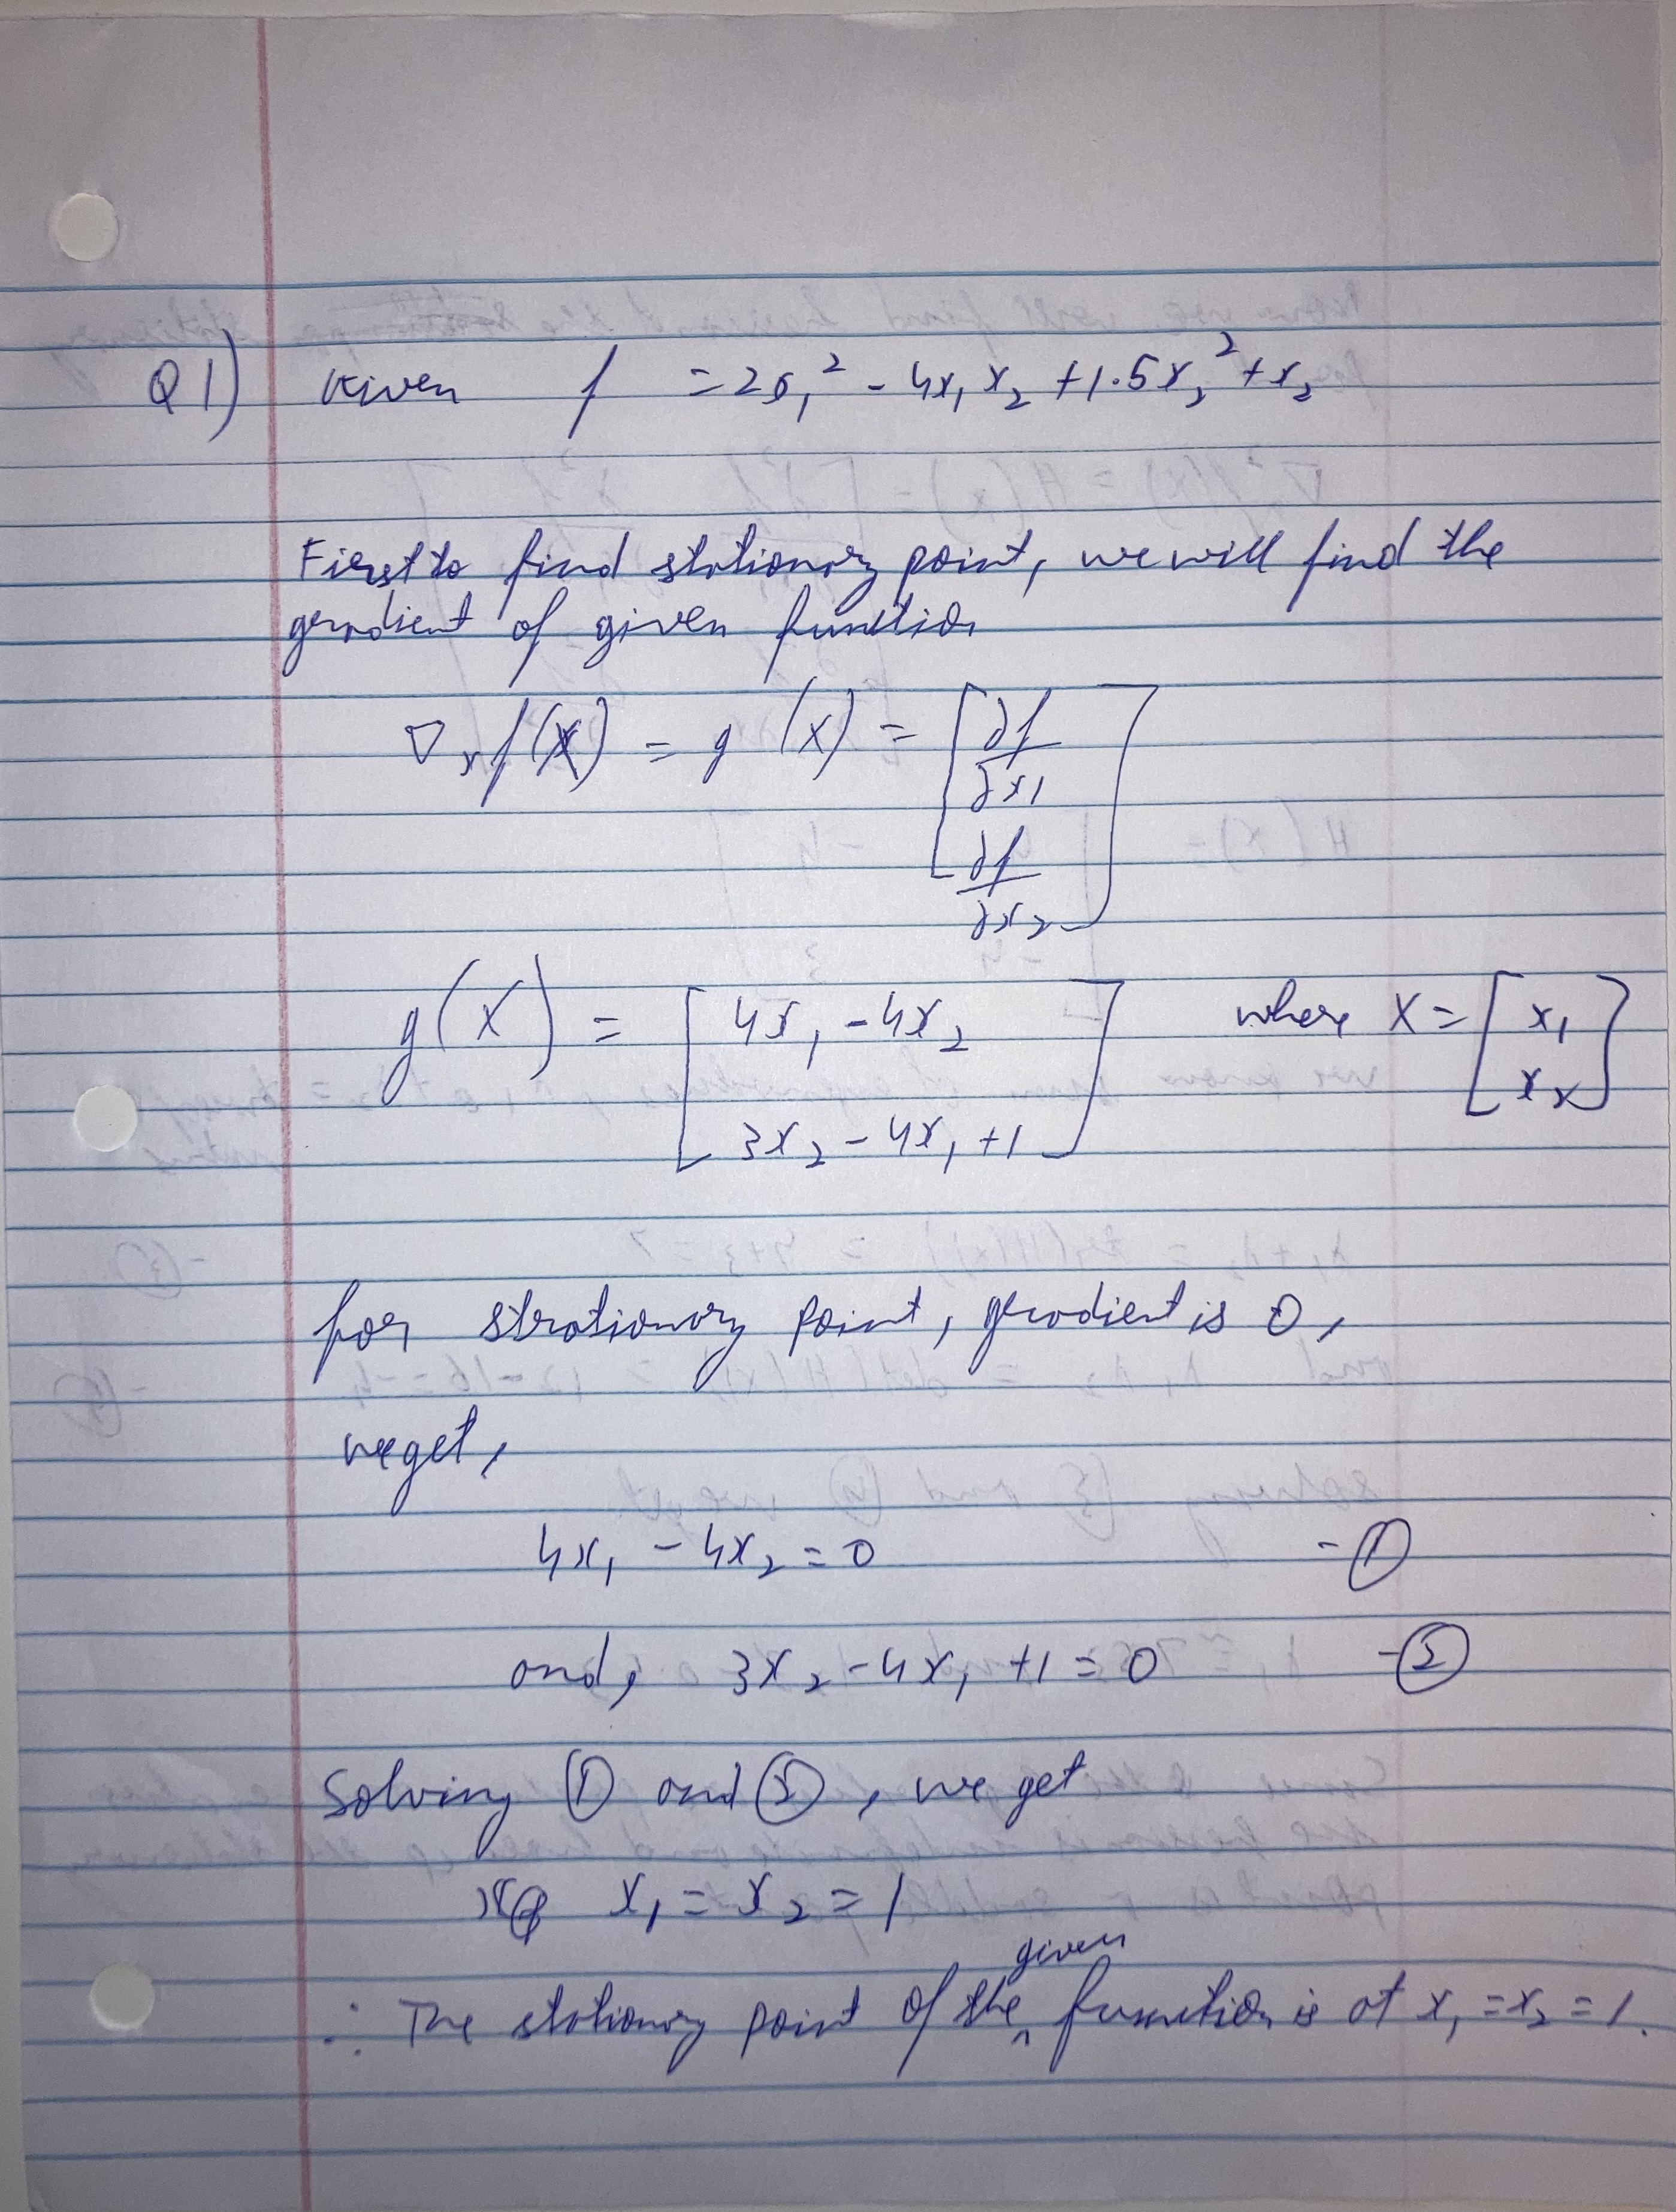 Q1) Given f = 2x₁² - 4x₁x₂ + 1.5x₂² + x₂
First to find stationary point, we will find the
gradient of given function
∇ₓf(X) = g(X) = [∂f/∂x1
∂f/∂x₂]
g(X) = [4x₁ - 4x₂
3x₂ - 4x₁ + 1] where X = [x₁
x₂]
for strationary point, gradient is 0,
we get,
4x₁ - 4x₂ = 0 - ①
and, 3x₂ - 4x₁ + 1 = 0 - ②
Solving ① and ②, we get
x₁ = x₂ = 1
∴ The stationary point of the given function is at x₁ = x₂ = 1.